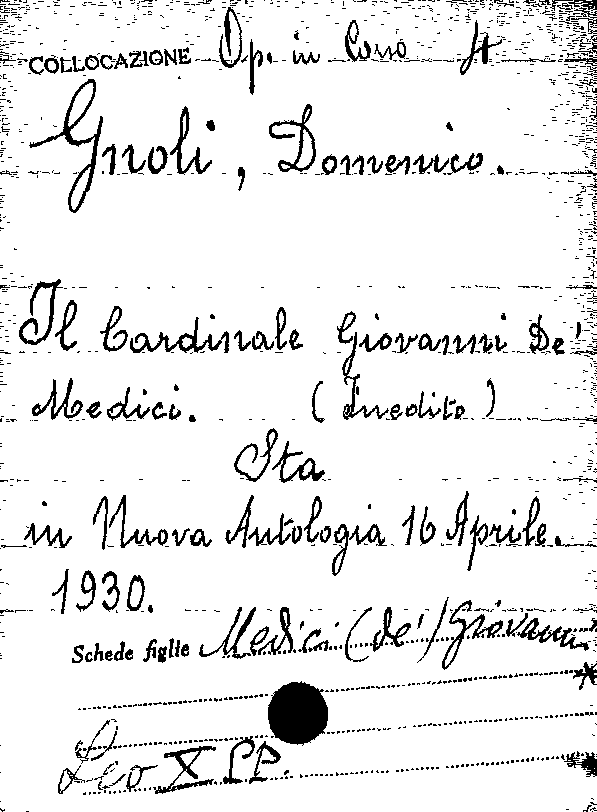 COLLOCAZIONE Op. in Corso It
Gnoli, Domenico.
Il Cardinale Giovanni De'
Medici. (Inedito)
Sta
in Nuova Antologia 16 Aprile.
1930.
Schede figlie Medici (de') Giovanni
Leo X PP.